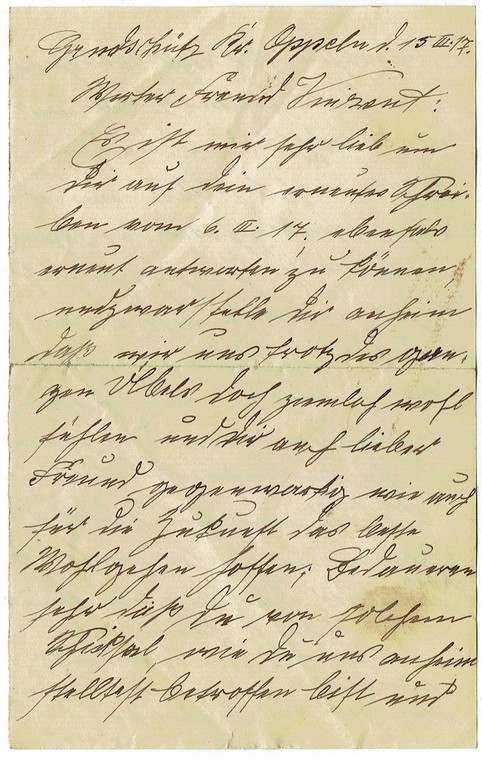 Grudschütz Kr. Oppeln d. 15 III. 17.
Werter Freund Vinzent!
Es ist mir sehr lieb um
Dir auf dein erneutes Schrei-
ben vom 6. II. 17. ebenfals
erneut antworten zu können,
und zwar stelle Dir anheim
daß wir uns trotz des gan-
zen Übels doch ziemlich wohl
fühlen und Dir auch lieber
Freund gegenwärtig wie auch
für die Zukunft das beste
Wohlgehen hoffen; Bedaueren
sehr daß Du von solchem
Schicksal wie Du uns anheim
stelltest betroffen bist und